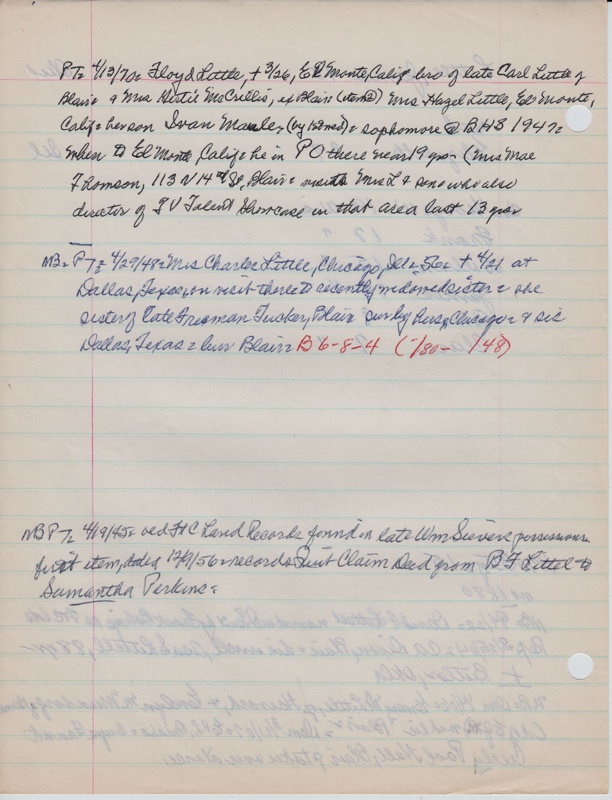 PT= 4/13/70= Floyd Little, + 3/26, El Monte, Calif bro of late Carl Little of
Blair & Mrs Gertie McCrillis, ex Blair (item @) Mrs Hazel Little, El Monte,
Calif = her son Ivan (by 1st med) = sophomore @ BHS 1947=
when to El Monte, Calif = he in PO there near 19 yrs - (Mrs Mae
Thomson, 113 N 14th St, Blair = visits Mrs L & son who also
director of TV Talent Showcase in that area last 13 yrs
MB= PT= 4/29/48= Mrs Charles Little, Chicago, Ill = 50= + 4/21 at
Dallas, Texas, on visit there to recently widowed sister = she
sister of late Freeman Tucker, Blair sur by hus, Chicago = & sis
Dallas, Texas = bur Blair= B 6-8-4 ( /80- /48)
MB PT= 4/19/45= old Land Records found in late Wm Sievers possession
first item, dated 12/9/56 = records Quit Claim Deed from B F Littel to
Samantha Perkins=